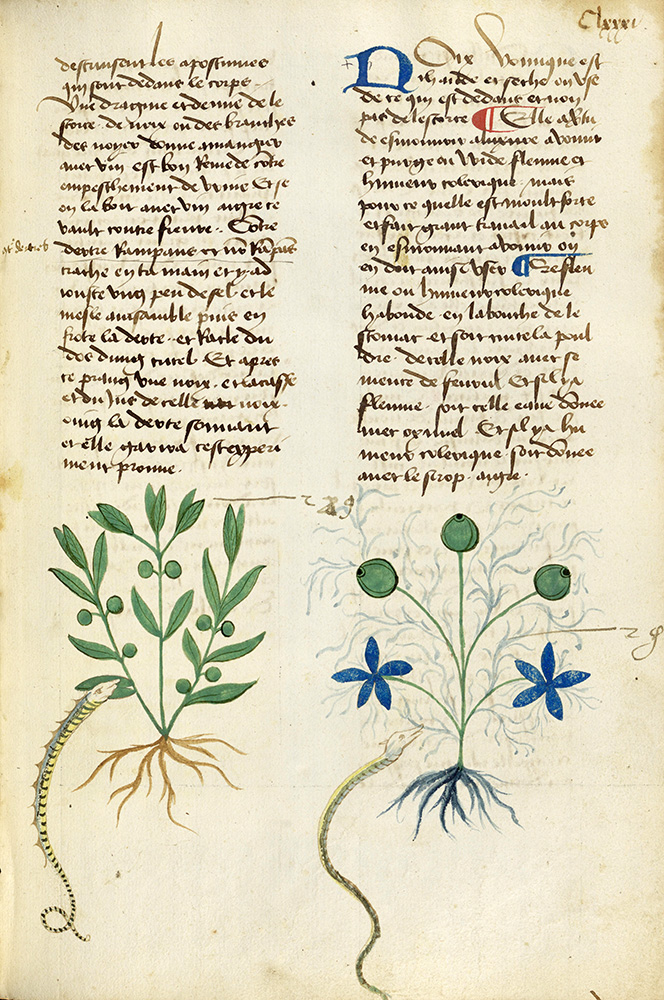 Clxxxi
destruisent les apostumes
qui sont dedans le corps.
Une dragme et demie de le
scorce de noix ou des branches
des noyer donne a mangier
avec vin est bon remede contre
empeschement de urine Et se
on la boit avec vin aigre ce
vault contre fievre. Contre
dertre Rampans
crache en ta main et y ad
iouste ung peu de sel et le
mesle ensamble puis en
frote la dertre et Racle du
dos dung cutel Et apres
ce prang une noix et la casse
et du Jus de celle noix
oing la dertre souvant
et elle garira cest experi
ment prouve.
Noix Vomique est
chaulde et seche on use
de ce qui est dedans et non
pas de lescorce Elle a vertu
de esmouvoir a vomir
et purge en wide flemme et
humeur colerique mais
pour ce quelle est moult forte
et fait grant travail au corps
en esmouvant a vomir on
en doit ainsi user Se flem
me ou humeur colerique
habonde en la bouche de le
stomac et soit cuite la poul
dre de celle noix avec se
mence de fenoul Et sil y a
flemme soit celle eaue donnee
avec oximel Et sil y a hu
meur colerique soit donnee
avec le sirop aigre.